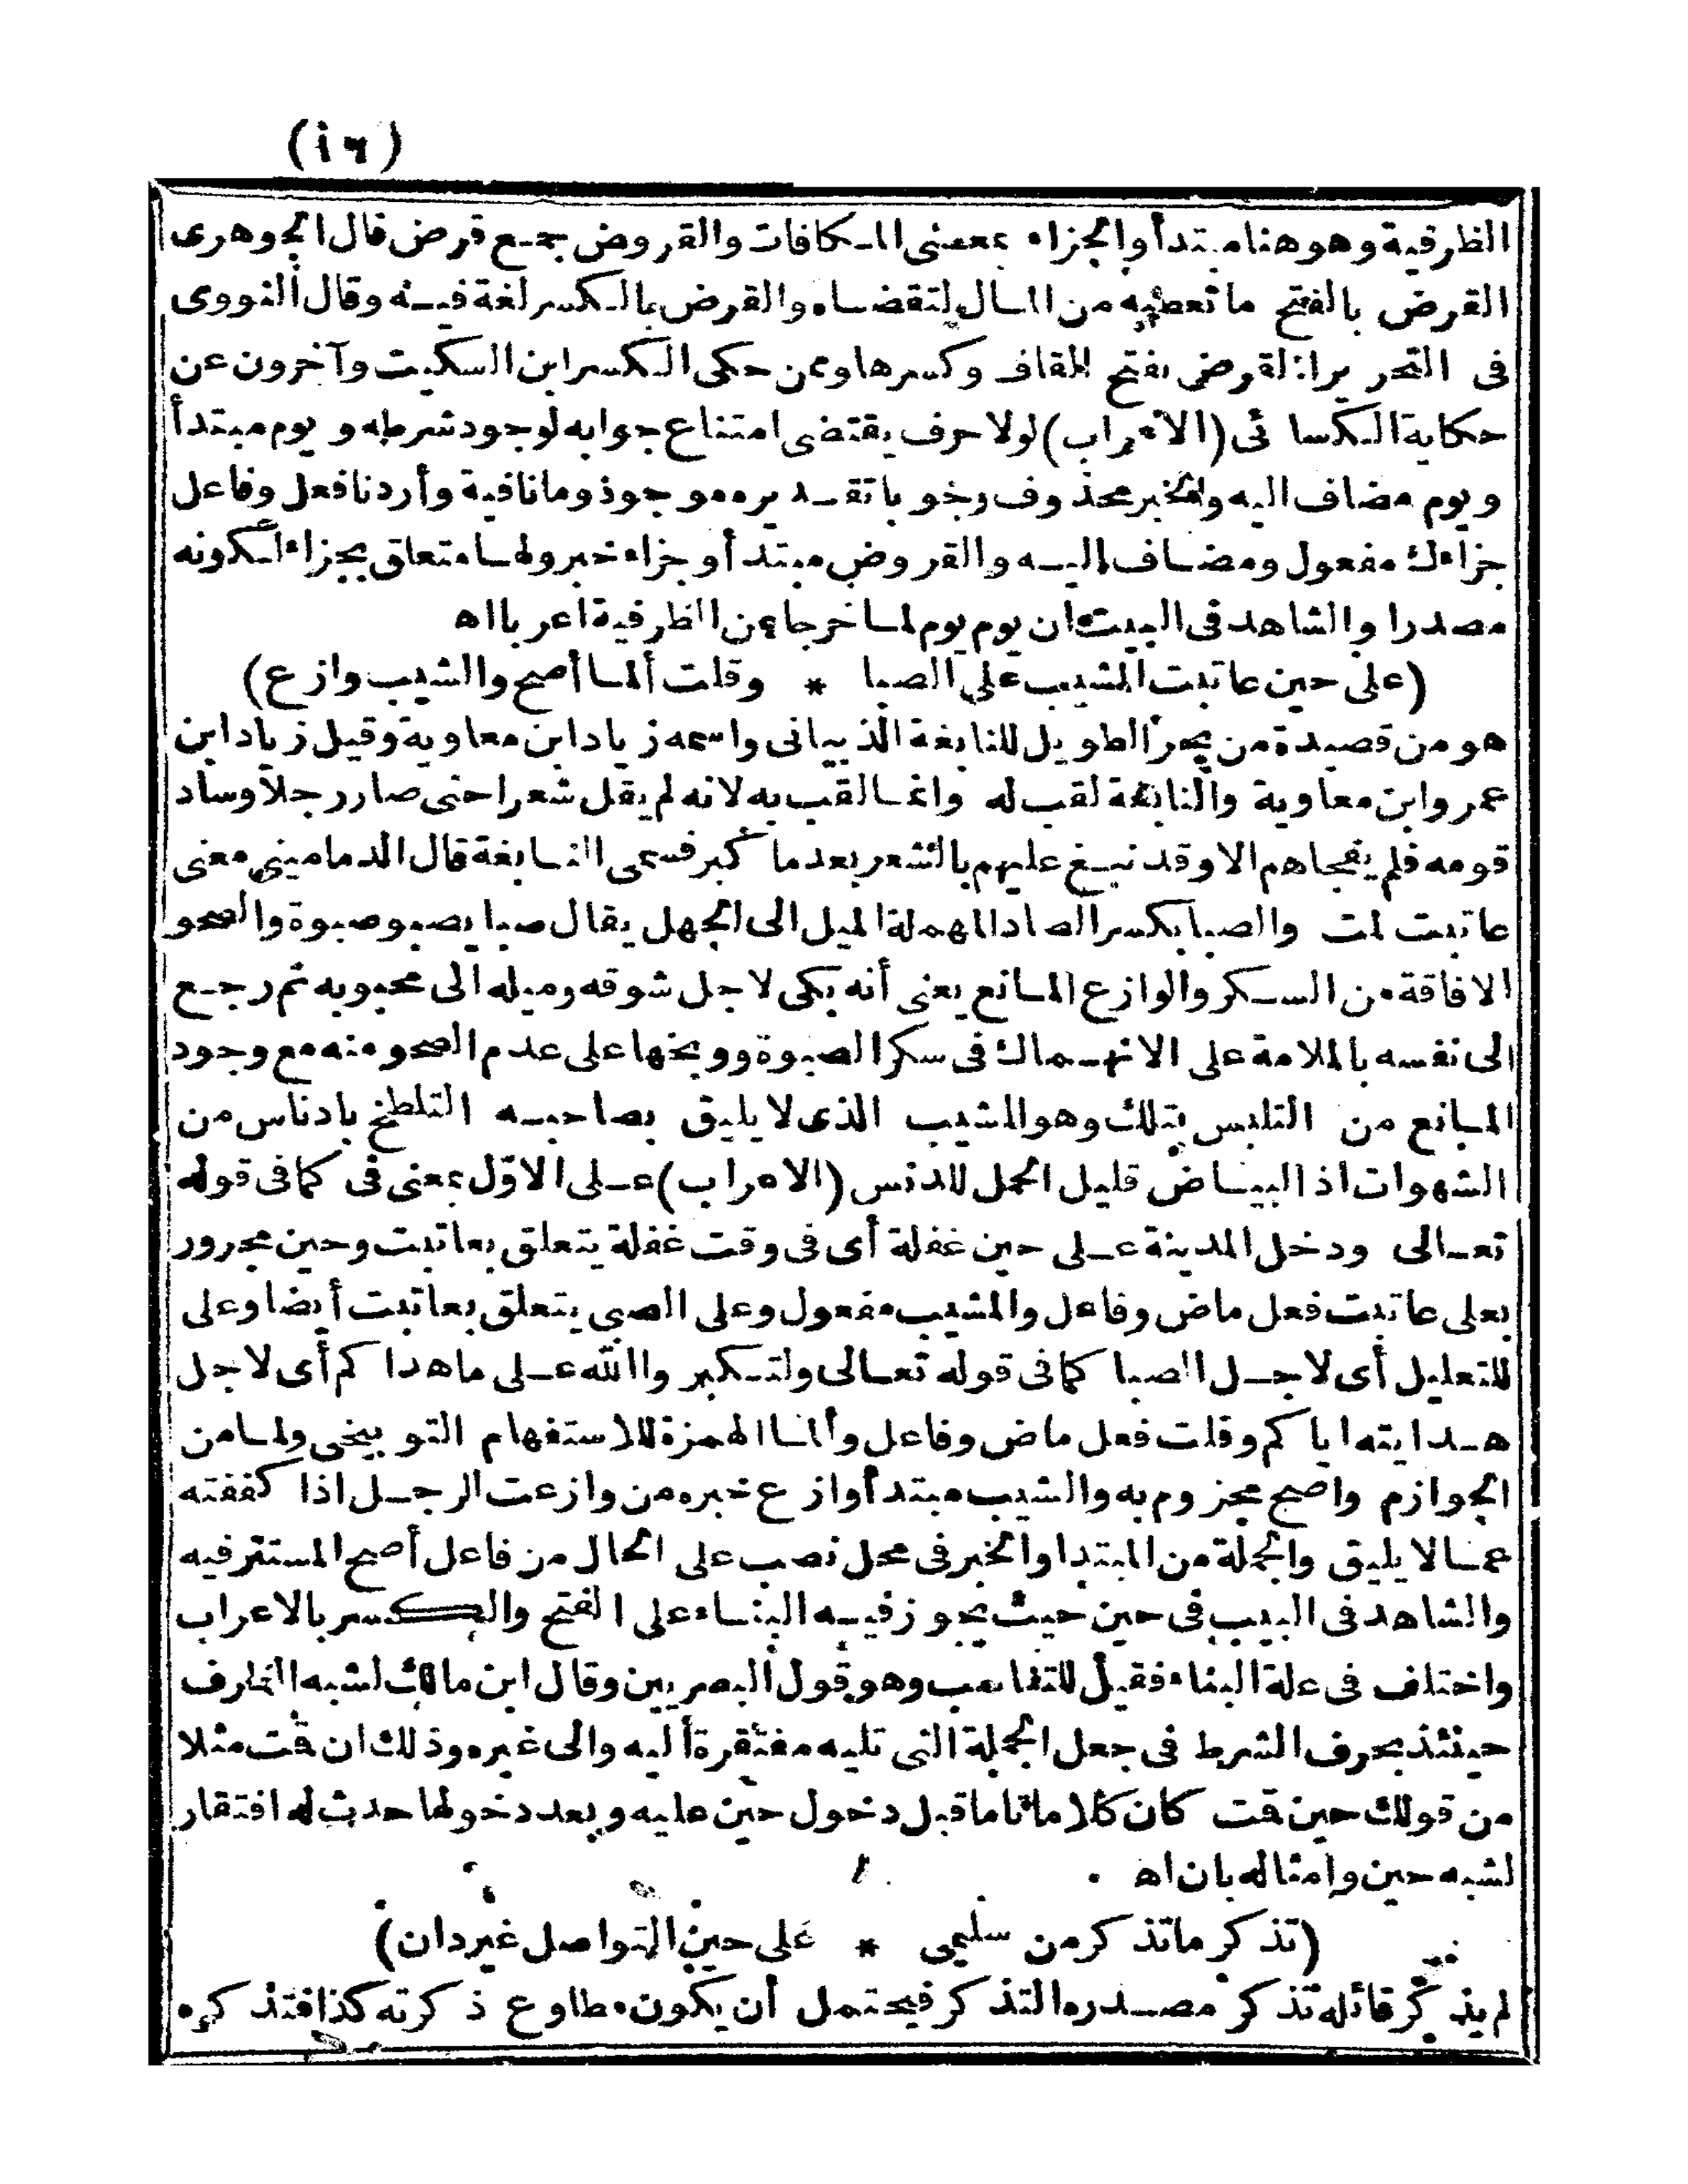 (١٦)
الظرفية وهو هنا مبتدأ والجزاء بمعنى المكافات والقروض جمع قرض قال الجوهرى
القرض بالفتح ما تعطيه من المال لتقضاه والقرض بالكسر لغة فيه وقال النووى
فى التحرير القرض بفتح القاف وكسرها وممن حكى الكسر ابن السكيت وآخرون عن
حكاية الكسائى (الاعراب) لولا حرف يقتضى امتناع جوابه لوجود شرطه و يوم مبتدأ
ويوم مضاف اليه والخبر محذوف وجوبا تقديره موجود وما نافية وأردنا فعل وفاعل
جزاءك مفعول ومضاف اليه والقروض مبتدأ وجزاء خبر ولها متعلق بجزاء لكونه
مصدرا والشاهد فى البيت ان يوم يوم لما خرجا عن الظرفية أعربا اه
(على حين عاتبت المشيب على الصبا * وقلت ألما أصح والشيب وازع)
هو من قصيدة من بحر الطويل للنابغة الذبيانى واسمه زياد ابن معاوية وقيل زياد ابن
عمرو ابن معاوية والنابغة لقب له وانما لقب به لانه لم يقل شعرا حتى صار رجلا وساد
قومه فلم يفجاهم الا وقد نبغ عليهم بالشعر بعدما كبر فسمى النابغة قال الدمامينى معنى
عاتبت لمت والصبا بكسر الصاد المهملة الميل الى الجهل يقال صبا يصبو صبوة والصحو
الافاقة من السكر والوازع المانع يعنى أنه بكى لاجل شوقه وميله الى محبوبه ثم رجع
الى نفسه بالملامة على الانهماك فى سكر الصبوة ووبخها على عدم الصحو منه مع وجود
المانع من التلبس بتلك وهو المشيب الذى لا يليق بصاحبه التلطخ بادناس من
الشهوات اذ البياض قليل الحمل للدنس (الاعراب) على الاوّل بمعنى فى كما فى قوله
تعالى ودخل المدينة على حين غفلة أى فى وقت غفلة يتعلق بعاتبت وحين مجرور
بعلى عاتبت فعل ماض وفاعل والمشيب مفعول وعلى الصبى يتعلق بعاتبت أيضا وعلى
للتعليل أى لاجل الصبا كما فى قوله تعالى ولتكبروا الله على ما هداكم أى لاجل
هدايته اياكم وقلت فعل ماض وفاعل وألما الهمزة للاستفهام التوبيخى ولما من
الجوازم واصح مجزوم به والشيب مبتدأ وازع خبره من وازعت الرجل اذا كففته
عما لا يليق والجملة من المبتدا والخبر فى محل نصب على الحال من فاعل أصح المستتر فيه
والشاهد فى البيب فى حين حيث يجوز فيه البناء على الفتح والكسر بالاعراب
واختلف فى علة البناء فقيل للتناسب وهو قول البصريين وقال ابن مالك لشبه الظرف
حينئذ بحرف الشرط فى جعل الجملة التى تليه مفتقرة أليه والى غيره وذلك ان قمت مثلا
من قولك حين قمت كان كلاما تاما قبل دخول حين عليه وبعد دخولها حدث له افتقار
لشبه حين وامثاله بان اه
(تذكر ما تذكر من سليمى * على حين التواصل غير دان)
لم يذكر قائله تذكر مصدره التذكر فيحتمل أن يكون مطاوع ذكرته كذا فتذكره